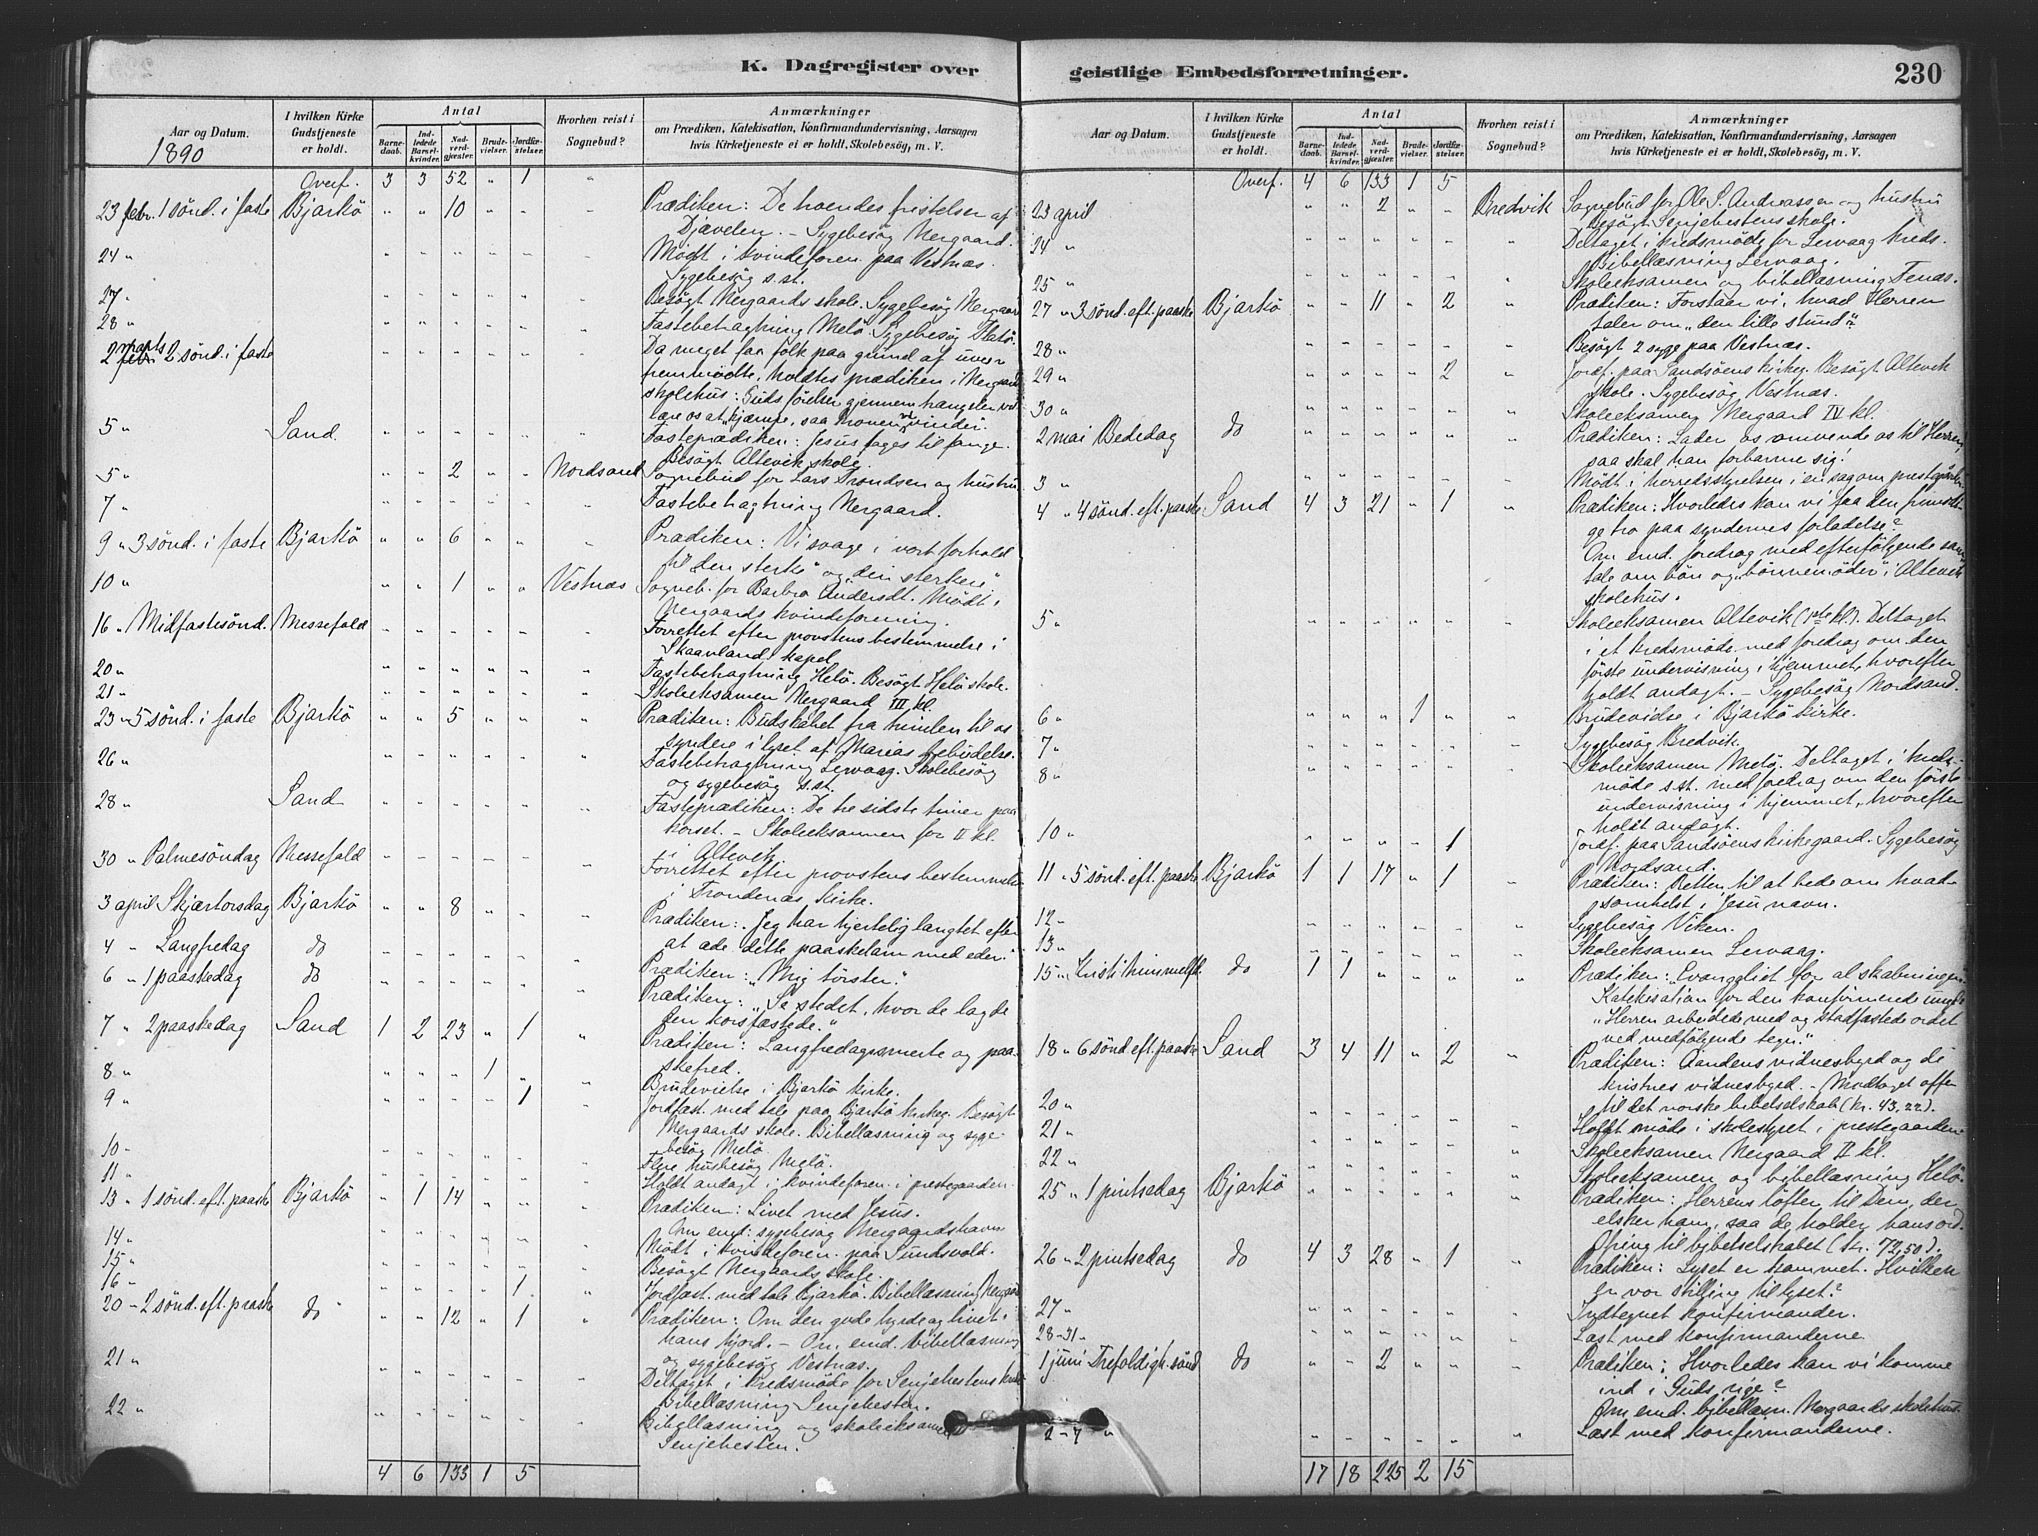 K. Dagregister over
geistlige Embedsforretninger.
230
Aar og Datum.
1890
I hvilken Kirke Gudstjeneste er holdt.
Antal
Barnedaab.
Indledede Barselkvinder.
Nadverdgjæster.
Brudevielser.
Jordfæstelser.
Hvorhen reist i Sognebud?
Anmærkninger
om Prædiken, Katekisation, Konfirmandundervisning, Aarsagen
hvis Kirketjeneste ei er holdt, Skolebesøg, m. V.
Overf. 3 3 52 " 1 "
23 febr. 1 sönd. i faste Bjarkö " " 10 " " " Prædiken: De troendes fristelser af
Djævelen. – Sygebesög Nergaard.
24 " Mödt i kvindeforen. paa Vestnæs.
Sygebesög s.st.
27 " Besögt Nergaards skole. Sygebesög Nergaard
28 " Fastebetragtning Melö. Sygebesög
2 marts 2 sönd. i faste Da meget faa folk paa grund af uveir
fremmödte, holdtes prædiken i Nergaards
skolehus: Guds förelser gjennem trængsler vil
lære os at kjæmpe, saa troen vinder.
5 " Sand. Fasteprædiken: Jesus tages til fange.
Besögt Altevik skole.
5 " " " 2 " " Nordsand Sognebud for Lars Trondsen og hustru
7 " Fastebetragtning Nergaard.
9 " 3 sönd. i faste Bjarkö " " 6 " " " Prædiken: Vi svage i vort forhold
til "den sterke" og "den sterkere"
10 " " " 1 " " Vestnæs Sogneb. for Barbra Andersdt. Mödt i
Nergaards kvindeforening.
16 " Midfastesönd. Messefald Forrettet efter provstens bestemmelse i
Skaanland kapel
20 " Fastebetragtning Helö. Besögt Helö skole.
21 " Skoleeksamen Nergaard III kl.
23 " 5 sönd. i faste Bjarkö " " 5 " " " Prædiken: Budskabet fra himlen til os
syndere i lyset af Marias bebudelse.
26 " Fastebetragtning Lervaag. Skolebesög
og sygebesög s.st.
28 " Sand Fasteprædiken: De tre sidste timer paa
korset. – Skoleeksamen for II kl.
i Altevik
30 " Palmesöndag Messefald Forrettet efter provstens bestemmelse
i Trondenæs kirke.
3 april Skjærtorsdag Bjarkö " " 8 " " Prædiken: Jeg har hjertelig langtet efter
at æde dette paaskelam med eder."
4 " Langfredag do Prædiken: "Mig törster."
6 " 1 paaskedag do Prædiken: "Se stedet, hvor de lagde
den korsfæstede."
7 " 2 paaskedag Sand 1 2 23 " 1 " Prædiken: Langfredagssmerte og paaskefred.
8 " " " " 1 " " Brudevielse i Bjarkö kirke.
9 " " " " " 1 " Jordfæst. med tale paa Bjarkö kirkeg. Besögt
Nergaards skole. Bibellæsning og sygebesög Melö
10 " Flere husbesög Melö.
11 " Holdt andagt i kvindeforen. i prestegaarden.
13 " 1 sönd. eft. paaske Bjarkö " 1 14 " " " Prædiken: Livet med Jesus.
Om emd. sygebesög Nergaardshavn
14 " Mödt i kvindeforen. paa Sundsvold.
15 " Besögt Nergaards skole.
16 " " " " " 1 " Jordfæst. med tale Bjarkö. Bibellæsning Nergaard
20 " 2 sönd. eft. paaske do " " 12 " 1 " Prædiken: Om den gode hyrde og livet i
hans hjord. – Om emd. bibellæsning
og sygebesög Vestnæs.
21 " Deltaget i kredsmöde for Senjehestens kreds
Bibellæsning Senjehesten.
22 " Bibellæsning og skoleeksamen
Senjehesten.
4 6 133 1 5
Aar og Datum.
I hvilken Kirke Gudstjeneste er holdt.
Antal
Barnedaab.
Indledede Barselkvinder.
Nadverdgjæster.
Brudevielser.
Jordfæstelser.
Hvorhen reist i Sognebud?
Anmærkninger
om Prædiken, Katekisation, Konfirmandundervisning, Aarsagen
hvis Kirketjeneste ei er holdt, Skolebesøg, m. V.
Overf. 4 6 133 1 5
23 april " " 2 " " Bredvik Sognebud for Ole S. Andreassen og hustru
Besögt Senjehestens skole.
24 " Deltaget i kredsmöde for Lervaag kreds.
Bibellæsning Lervaag.
25 " Skoleeksamen og bibellæsning Fenæs.
27 " 3 sönd. eft. paaske Bjarkö " " 11 " 2 " Prædiken: Forstaar vi, hvad Herren
taler om "den lille stund"?
28 " Besögt 2 syge paa Vestnæs.
29 " " " " " 2 " Jordf. paa Sandsöens kirkeg. Besögt Altevik
skole. Sygebesög Vestnæs.
30 " Skoleeksamen Nergaard IV kl.
2 mai Bededag do Prædiken: Lader os omvende os til Herren,
saa skal han forbarme sig!
3 " Mödt i herredsstyrelsen i en sag om prestegaarden
4 " 4 sönd. eft. paaske Sand 4 3 21 " 1 " Prædiken: Hvorledes kan vi faa den frimodige
tro paa syndernes forladelse?
Om emd. foredrag med efterfölgende samtale
om bön og "bönnemöder" i Altevik
skolehus.
5 " Skoleeksamen Altevik (1ste kl.). Deltaget
i et kredsmöde med foredrag om den
förste undervisning i hjemmet, hvorefter
holdt andagt. – Sygebesög Nordsand.
6 " " " " 1 " " Brudevielse i Bjarkö kirke.
7 " Sygebesög Bredvik.
8 " Skoleeksamen Melö. Deltaget i kredsmöde
s.st. med foredrag om den förste
undervisning i hjemmet, hvorefter
holdt andagt.
10 " " " " " 1 Jordf. paa Sandsöens kirkegaard. Sygebesög
Nordsand.
11 " 5 sönd. eft. paaske Bjarkö 1 1 17 " 1 " Prædiken: Retten til at bede om hvadsomhelst
i Jesu navn.
12 " Sygebesög Viken.
13 " Skoleeksamen Lervaag.
15 " Kristi himmelf. do 1 1 " " " " Prædiken: "Evangeliet for al skabningen."
Katekisation for den konfirmerede ungd.
"Herren arbeidede med og stadfæstede ordet
ved medfölgende tegn."
18 " 6 sönd eft. paaske Sand 3 4 11 " 2 " Prædiken: Aandens vidnesbyrd og de
kristnes vidnesbyrd. – Modtaget offer
til det norske bibelselskab (kr. 43,22).
20 " Holdt möde i skolestyret i prestegaarden
21 " Skoleeksamen Nergaard II kl.
22 " Skoleeksamen og bibellæsning Helö.
25 " 1 pintsedag Bjarkö Prædiken: Herrens löfter til Dem, der
elsker ham, saa de holder hans ord.
Ofring til bibelselskabet (kr. 72,50).
26 " 2 pintsedag do 4 3 28 " 1 " Prædiken: Lyset er kommet. Hvilken
er vor stilling til lyset?
27 " Indtegnet konfirmander.
28-31 " Læst med konfirmanderne
1 juni Trefoldigh. sönd do " " 2 " " " Prædiken: Hvorledes kan vi komme
ind i Guds rige?
Om emd. bibellæsn. Nergaards skolehus.
2-7 " Læst med konfirmanderne.
17 18 225 2 15